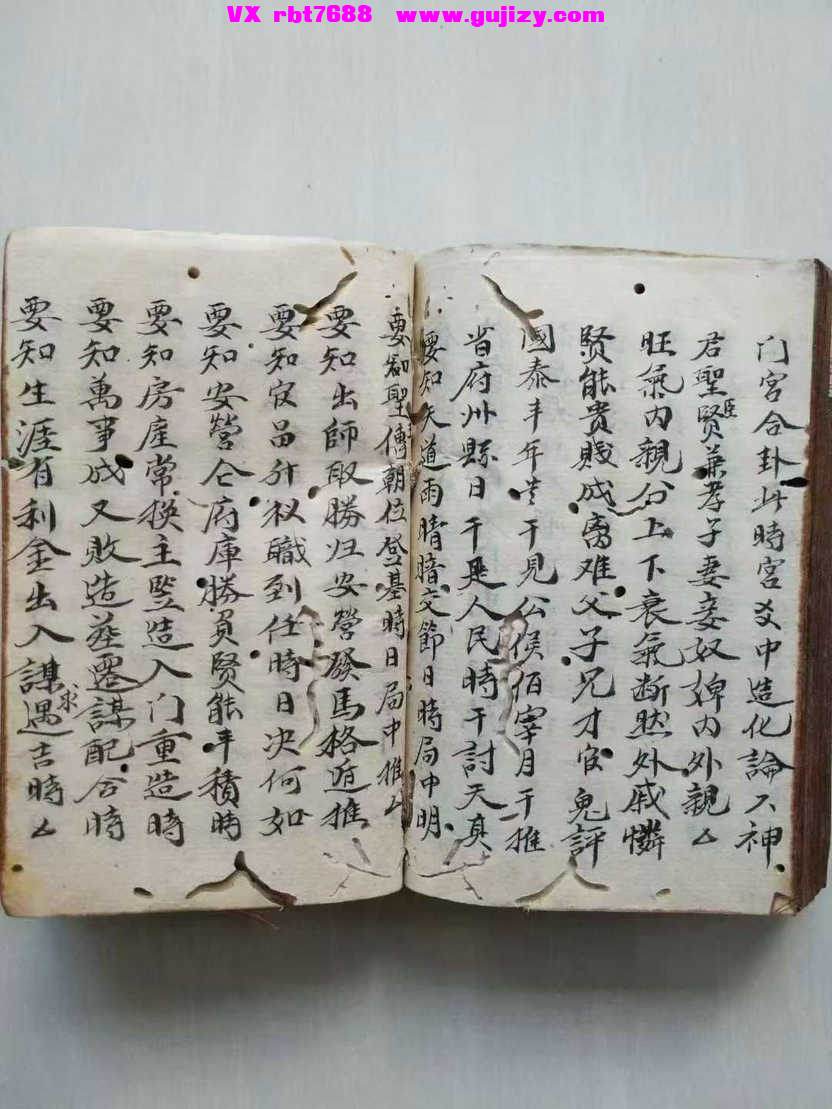 VX rbt7688 www.gujizy.com
门宮合卦此時宮爻中造化論六神
君臣聖賢兼孝子妻妾奴婢内外親
旺氣内親分上下衰氣断然外戚憐
贤能贵贱成离难父子兄才官鬼評
國泰丰年干見公侯佰宰月干推
省府州縣日干是人民時干討天真
要知天道雨晴暗交節日時局中明
要知聖傳朝位登基時日局中推
要知出師取勝归安營發馬格道推
要知官品升职到任時日决何如
要知安營仓府庫勝負賢能半積時
要知房産常换主竪造入门重造時
要知萬事成又敗造葬遷謀配合時
要知生涯有利金出入謀求遇吉時